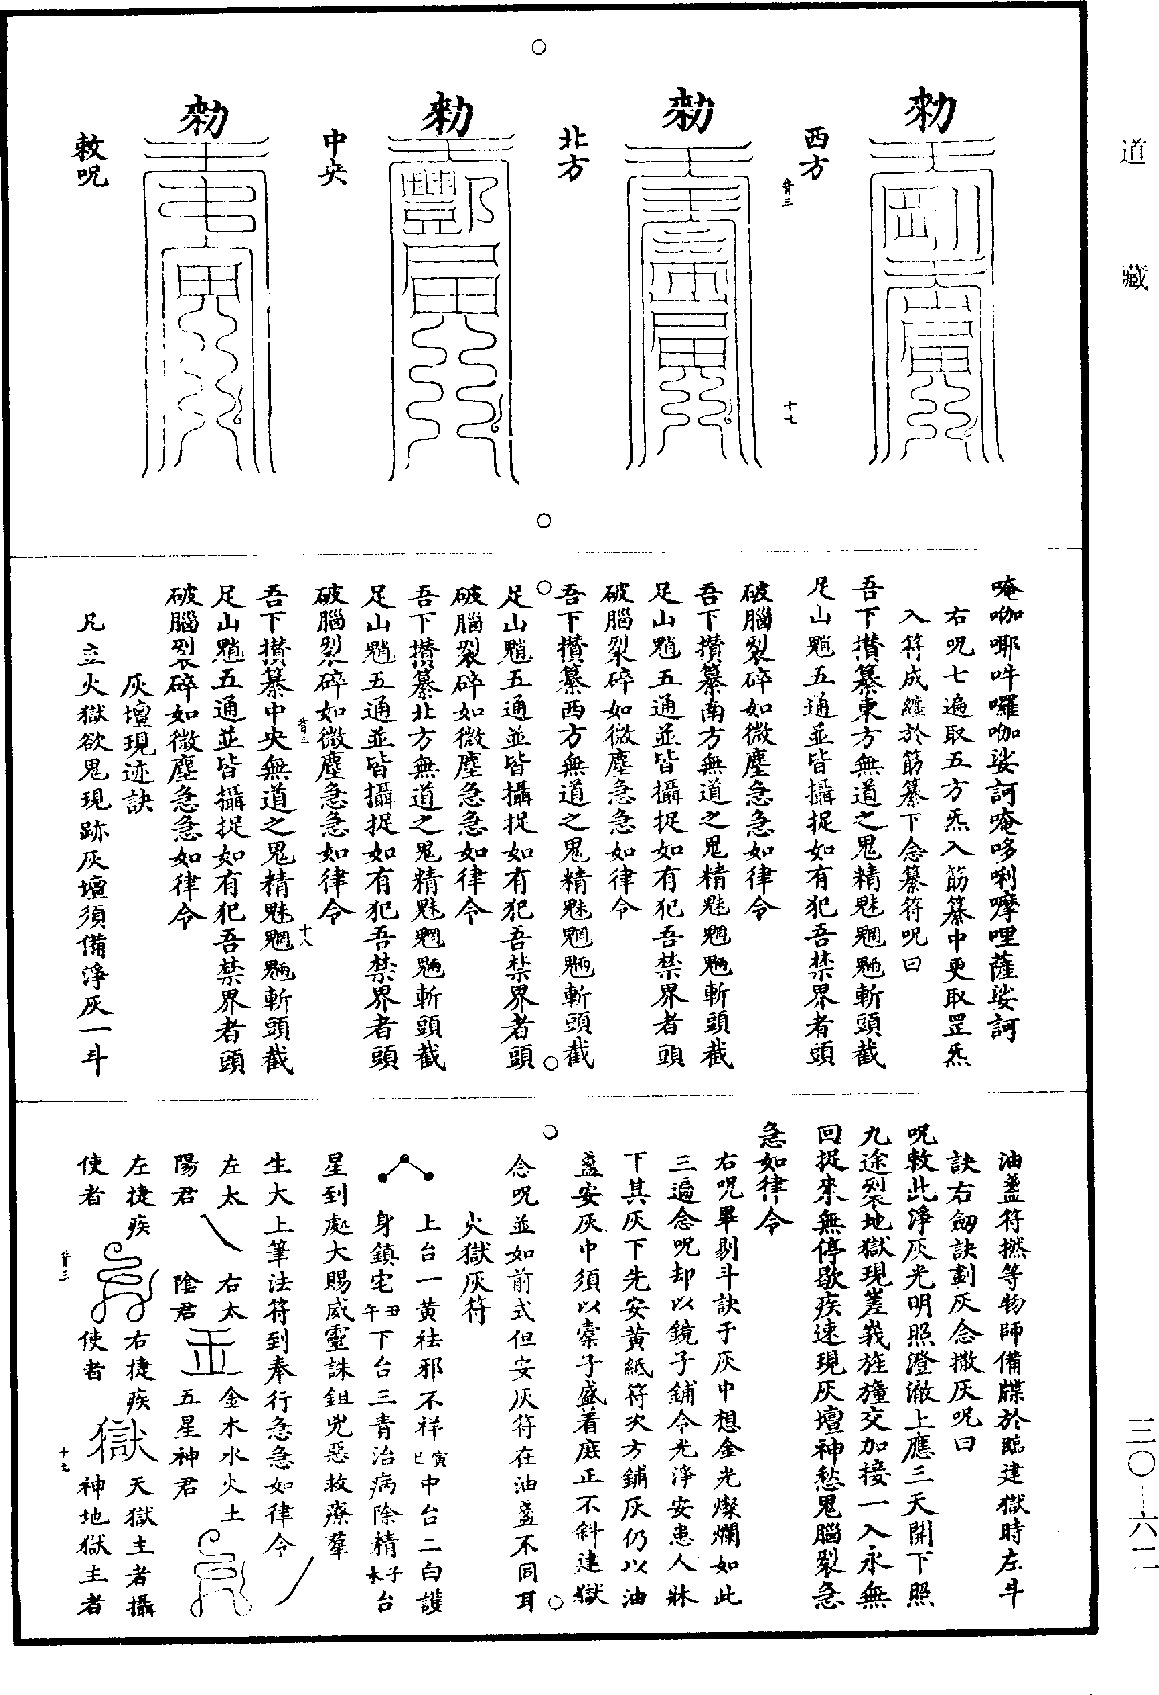 道藏
三〇—六一一
西方
勅
北方
勅
中央
勅
敕呪
勅
唵咖㖿吽囉咖娑訶唵哆唎嚤哩薩娑訶
右呪七遍取五方炁入筋纂中更取罡炁
入符成纏於筋纂下念纂符呪曰
吾下攢纂東方無道之鬼精魅魍魎斬頭截
足山魈五通並皆攝捉如有犯吾禁界者頭
破腦裂碎如微塵急急如律令
吾下攢纂南方無道之鬼精魅魍魎斬頭截
足山魈五通並皆攝捉如有犯吾禁界者頭
破腦裂碎如微塵急急如律令
吾下攢纂西方無道之鬼精魅魍魎斬頭截
足山魈五通並皆攝捉如有犯吾禁界者頭
破腦裂碎如微塵急急如律令
吾下攢纂北方無道之鬼精魅魍魎斬頭截
足山魈五通並皆攝捉如有犯吾禁界者頭
破腦裂碎如微塵急急如律令
十八
吾下攢纂中央無道之鬼精魅魍魎斬頭截
足山魈五通並皆攝捉如有犯吾禁界者頭
破腦裂碎如微塵急急如律令
灰壇現迹訣
凡立火獄欲鬼現跡灰壇須備淨灰一斗
油盞符撚等物師備牒於臨建獄時左斗
訣右劒訣劃灰念撒灰呪曰
呪敕此淨灰光明照澄澈上應三天開下照
九途裂地獄現峩峩旌幢交加接一入永無
回捉來無停歇疾速現灰壇神愁鬼腦裂急
急如律令
右呪畢剔斗訣于灰中想金光燦爛如此
三遍念呪却以鏡子鋪令光淨安患人牀
下其灰下先安黃紙符次方鋪灰仍以油
盞安灰中須以橐子盛着底正不斜建獄
念呪並如前式但安灰符在油盞不同耳
火獄灰符
上台一黃祛邪不祥寅巳中台二白護
身鎮宅丑午下台三青治病除精子未台
星到處大賜威靈誅鉏兇惡救療羣
生大上筆法符到奉行急急如律令
左太 右太 金木水火土
陽君 陰君 五星神君
左捷疾 右捷疾 獄 天獄主者攝
使者 使者 神地獄主者